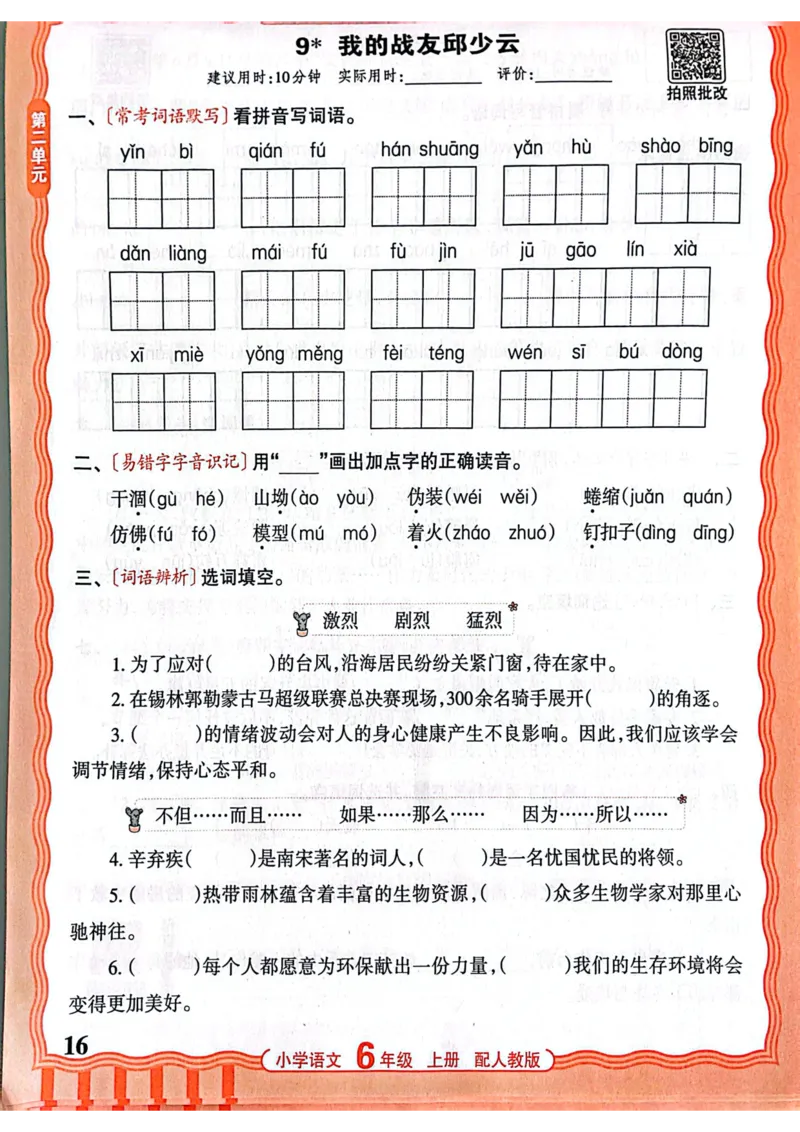 9* 我的战友邱少云
建议用时:10分钟 实际用时:________ 评价:________
拍照批改
第二单元
一、〔常考词语默写〕看拼音写词语。
yǐn bì qián fú hán shuāng yǎn hù shào bīng
dǎn liàng mái fú fù jìn jū gāo lín xià
xī miè yǒng měng fèi téng wén sī bú dòng
二、〔易错字字音识记〕用“____”画出加点字的正确读音。
干涸(gù hé) 山坳(ào yòu) 伪装(wéi wěi) 蜷缩(juǎn quán)
仿佛(fú fó) 模型(mú mó) 着火(zháo zhuó) 钉扣子(dìng dīng)
三、〔词语辨析〕选词填空。
激烈 剧烈 猛烈
1. 为了应对( )的台风,沿海居民纷纷关紧门窗,待在家中。
2. 在锡林郭勒蒙古马超级联赛总决赛现场,300余名骑手展开( )的角逐。
3. ( )的情绪波动会对人的身心健康产生不良影响。因此,我们应该学会
调节情绪,保持心态平和。
不但……而且…… 如果……那么…… 因为……所以……
4. 辛弃疾( )是南宋著名的词人,( )是一名忧国忧民的将领。
5. ( )热带雨林蕴含着丰富的生物资源,( )众多生物学家对那里心
驰神往。
6. ( )每个人都愿意为环保献出一份力量,( )我们的生存环境将会
变得更加美好。
16
小学语文 6年级 上册 配人教版